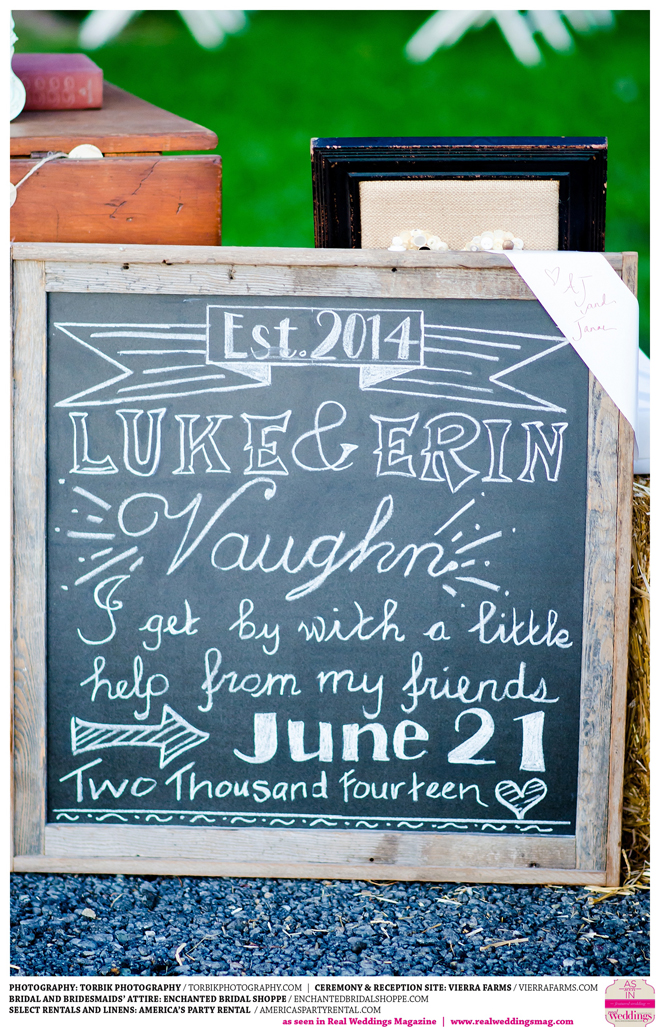 Est. 2014
LUKE & ERIN
Vaughn
I get by with a little
help from my friends
June 21
Two Thousand Fourteen
and
PHOTOGRAPHY: TORBIK PHOTOGRAPHY / TORBIKPHOTOGRAPHY.COM | CEREMONY & RECEPTION SITE: VIERRA FARMS / VIERRAFARMS.COM
BRIDAL AND BRIDESMAIDS' ATTIRE: ENCHANTED BRIDAL SHOPPE / ENCHANTEDBRIDALSHOPPE.COM
SELECT RENTALS AND LINENS: AMERICA'S PARTY RENTAL / AMERICASPARTYRENTAL.COM
as seen in Real Weddings Magazine | www.realweddingsmag.com
AS
seen
IN
Weddings